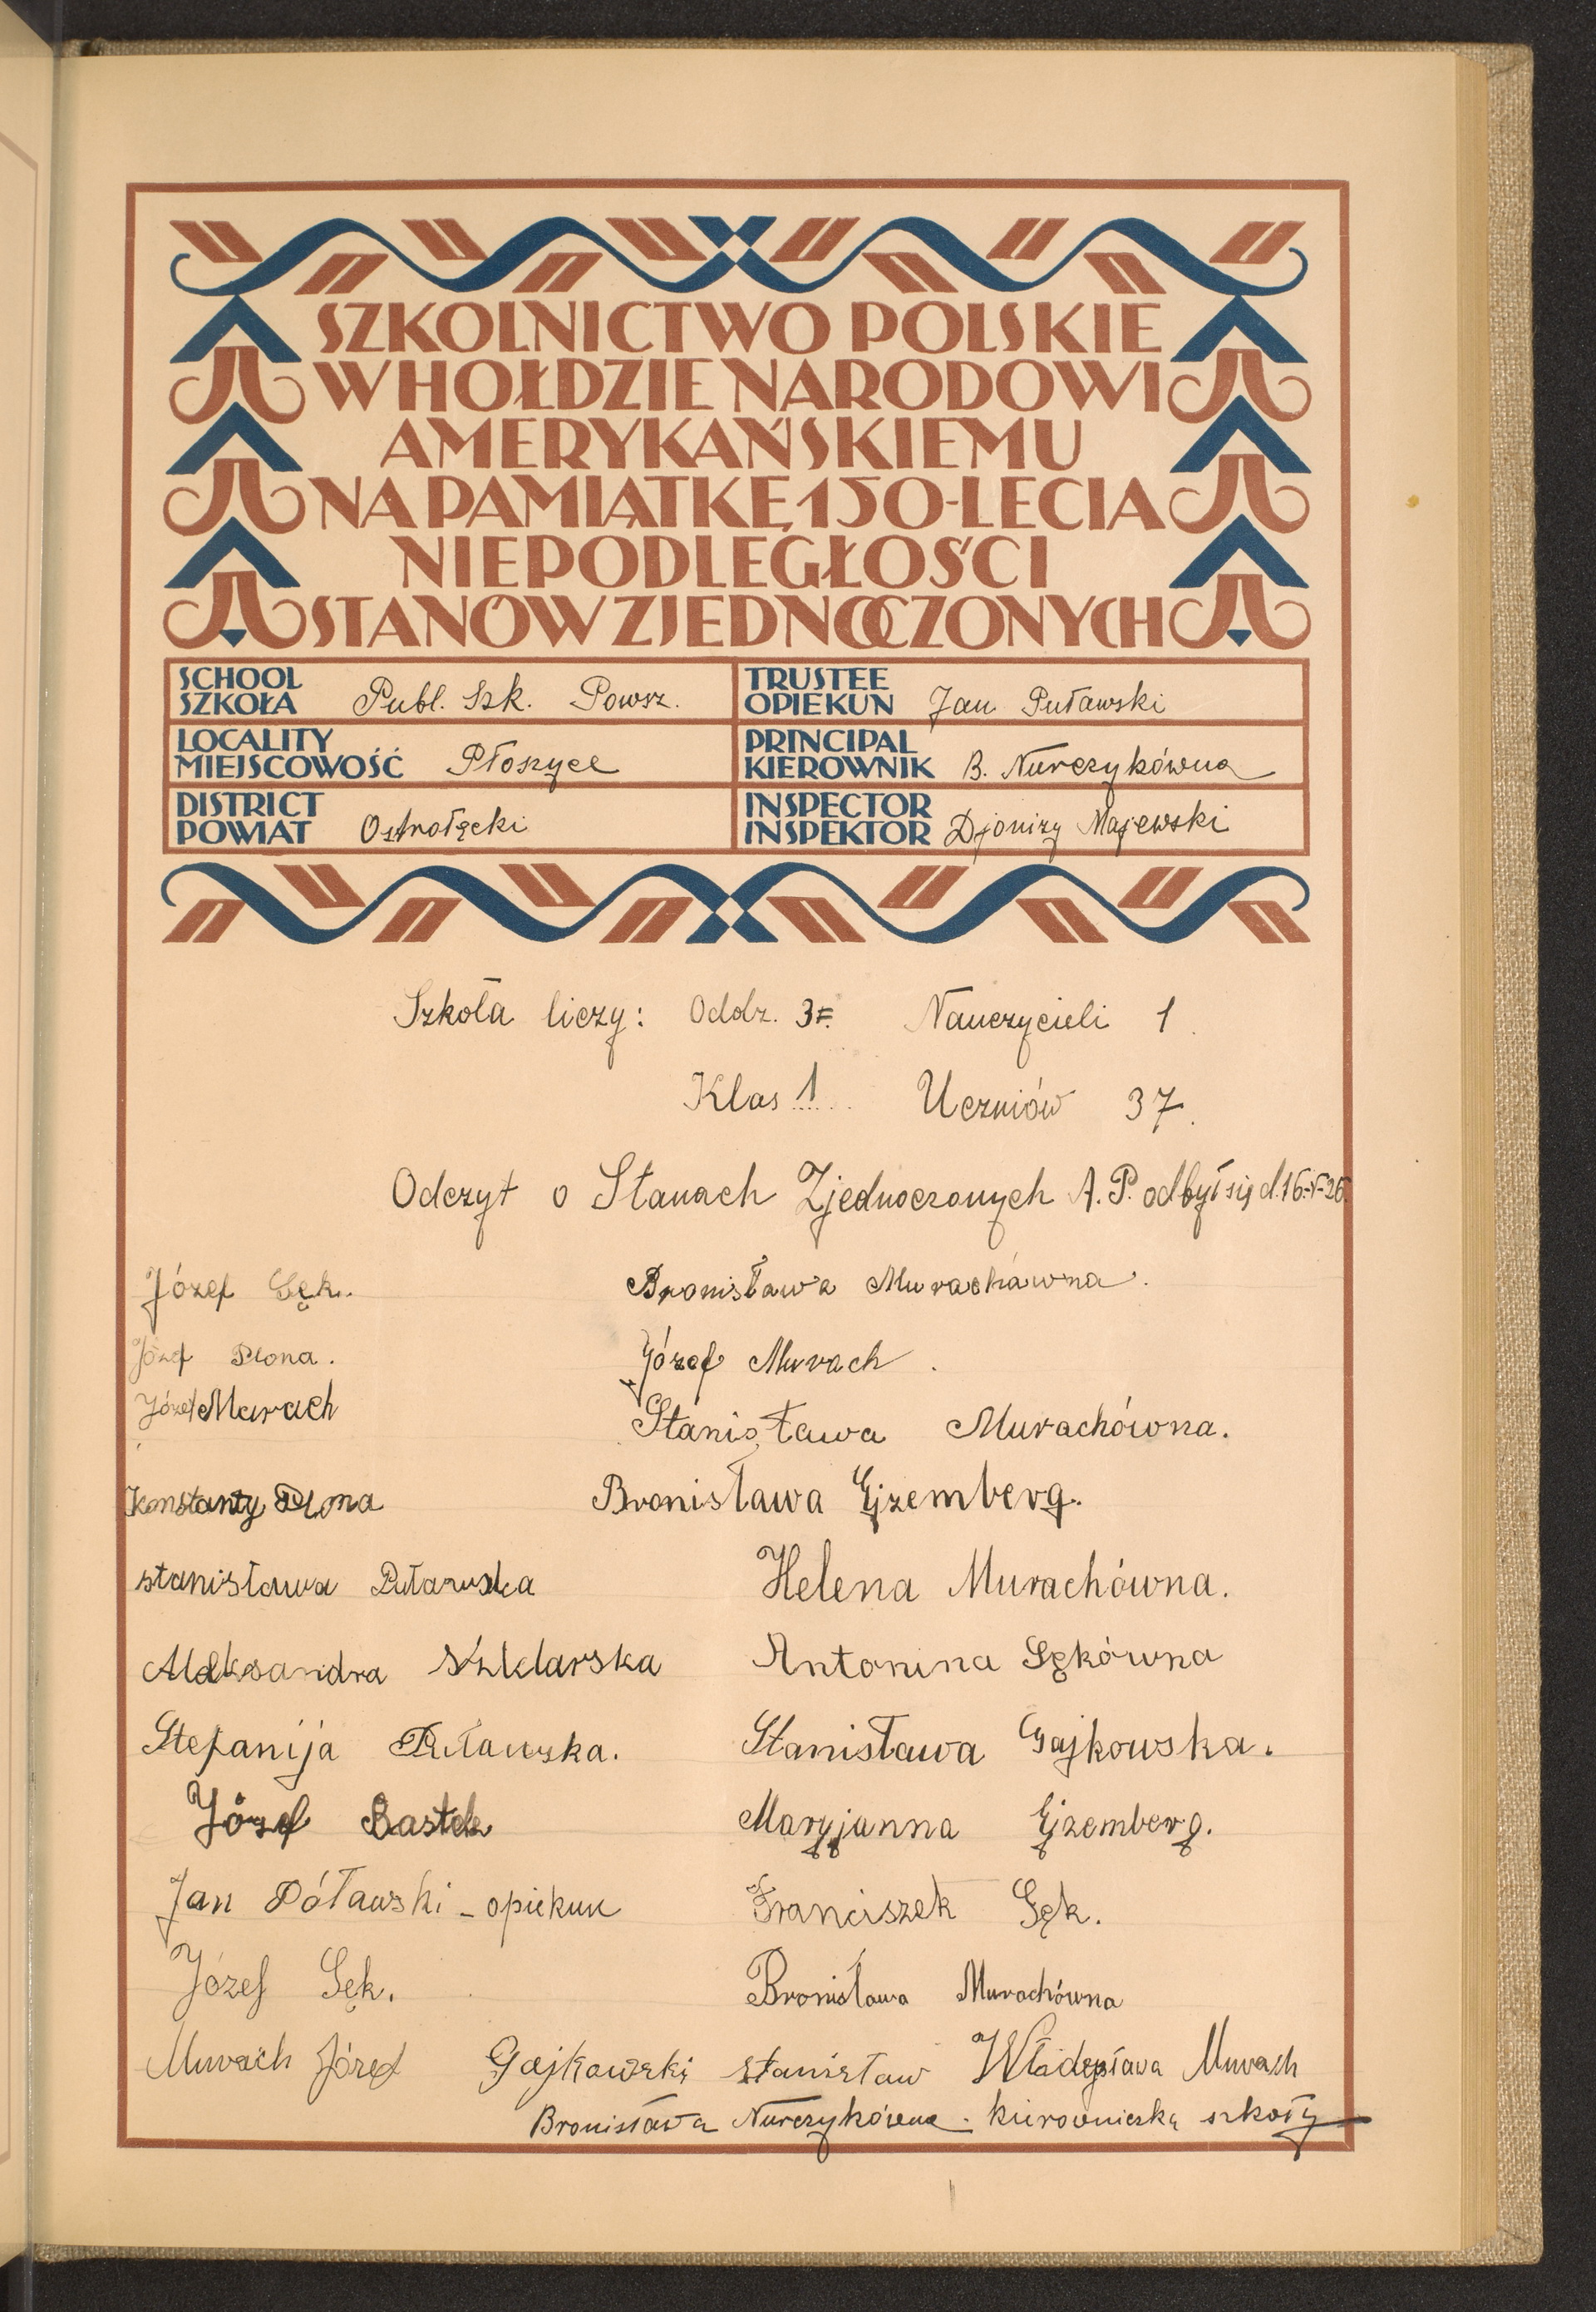 SZKOLNICTWO POLSKIE
W HOŁDZIE NARODOWI
AMERYKAŃSKIEMU
NA PAMIĄTKĘ 150-LECIA
NIEPODLEGŁOŚCI
STANÓW ZJEDNOCZONYCH
SCHOOL
SZKOŁA Publ. Szk. Powsz.
TRUSTEE
OPIEKUN Jan Puławski
LOCALITY
MIEJSCOWOŚĆ Płoszyce
PRINCIPAL
KIEROWNIK B. Nurczykówna
DISTRICT
POWIAT Ostrołęcki
INSPECTOR
INSPEKTOR Djonizy Majewski
Szkoła liczy: Oddz. 3 Nauczycieli 1
Klas 1 Uczniów 37.
Odczyt o Stanach Zjednoczonych A. P. odbył się d. 16-V-26.
Józef Sęk. Bronisława Murachawna.
Józef Plona. Józef Murach.
Józef Murach Stanisława Murachówna.
Konstanty Plona Bronisława Ejzemberg.
stanisława Puławska Helena Murachówna.
Aleksandra Szklarska Antonina Sękówna
Stefanija Puławska. Stanisława Gajkowska.
Józef Bastek Maryjanna Ejzemberg.
Jan Póławski - opiekun Franciszek Sęk.
Józef Sęk. Bronisława Murachówna
Murach Józef Gajkowski stanisław Władysława Murach
Bronisława Nurczykówna - kierowniczka szkoły